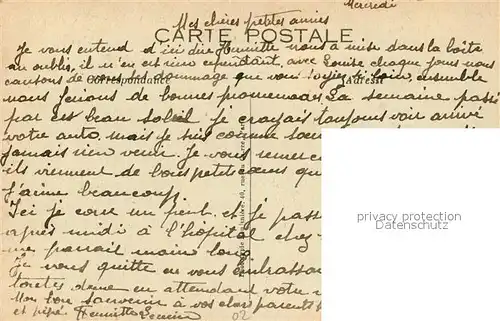 Mercredi
Mes chères petites amies
CARTE POSTALE
Je vous entend d'ici dire Henriette nous a mise dans la boîte
au oublis, il n'en est rien cependant, avec Louise chaque jour nous
causons de vous, dommage que vous soyez si loin, ensemble
Correspondance
Adresse
nous ferions de bonnes promenades. La semaine passé
par ces beau soleil je croyais toujours voir arrivé
votre auto, mais je suis comme
jamais rien venir. Je vous remer
ils viennent de bons petits cœurs qu
j'aime beaucoup.
Ici je cour un peut, et je pass
après midi à l'hôpital chez
me parait moin long.
Je vous quitte en vous embrassa
toutes deux en attendant votre
Mon bon souvenir à vos chers parents
et pipé. Henriette
02
privacy protection
www.ansichtskarten-lexikon.de